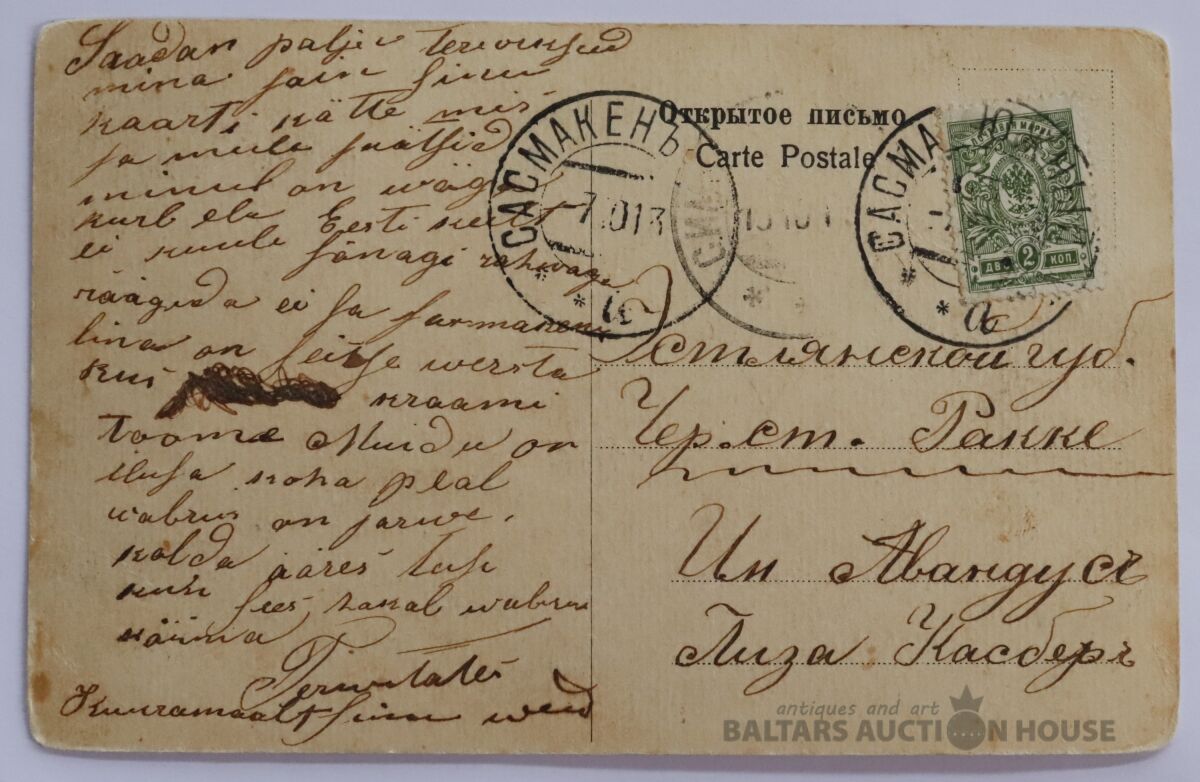 Saadan palju terwisid
mina sain sinu
kaarti kätte mis
sa meile saatsid
minul on wäga
kurb ela Eesti keelt
ei kuule sõnagi rahwaga
rääkida ei sa sasmakeni
lina on seitse wersta
kus kraami
toome Muidu on
ilusa koha peal
wabrus on jarwe
kalda ääres
sees hakab wabrus
käima
Terwitates
Kuuramaalt sinu wend
Открытое письмо
Carte Postale
САСМАКЕНЪ
7.10.13
а
САСМА
а
ДВѢ 2 КОП.
Эстлянской губ.
Чер. ст. Ракке
Им Авандусъ
Лиза Касберъ
antiques and art
BALTARS AUCTION HOUSE